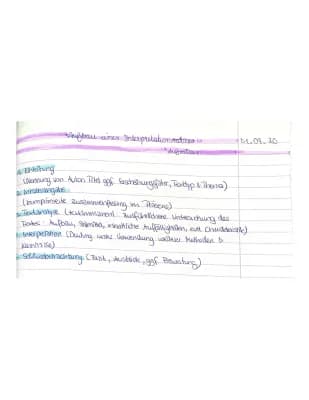 Aufbau einer Interpretation
01.09.20
1. Einleitung
(Nennung von Autor, Titel, ggf. Entstehungsjahr, Texttyp & Thema)
2. Inhaltsangabe
(komprimierte Zusammenfassung im Präsens)
3. Textanalyse (textimmanent: ausführlichere Untersuchung des
Textes: Aufbau, inhaltliche Auffälligkeiten,
4. Interpretation (Deutung unter Verwendung weiterer Methoden &
Kenntnisse)
5. Schlussbetrachtung (Fazit, Ausblick, ggf. Bewertung)